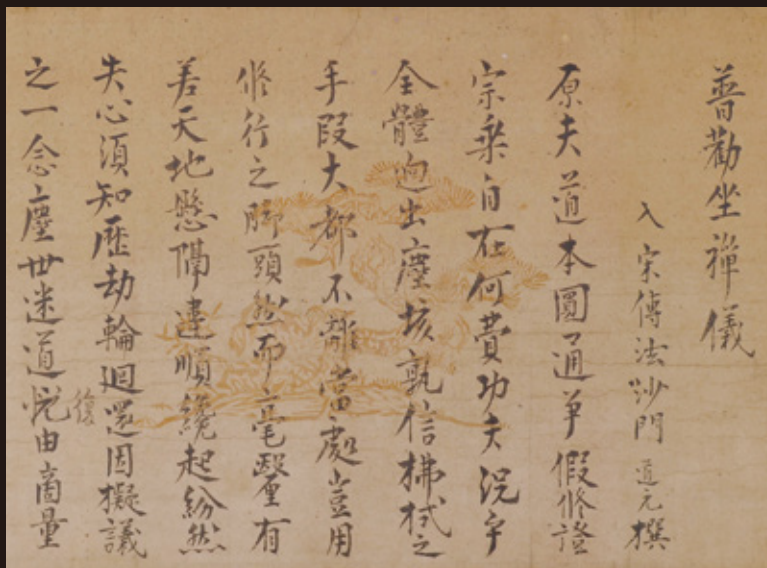 普勸坐禪儀
入宋傳法沙門 道元 撰
原夫道本圓通爭假修證
宗乘自在何費功夫況乎
全體迥出塵埃孰信拂拭之
手段大都不離當處豈用
修行之脚頭然而毫釐有
差天地懸隔違順纔起紛然
失心須知歷劫輪迴還因擬議
之一念塵世迷道復由商量